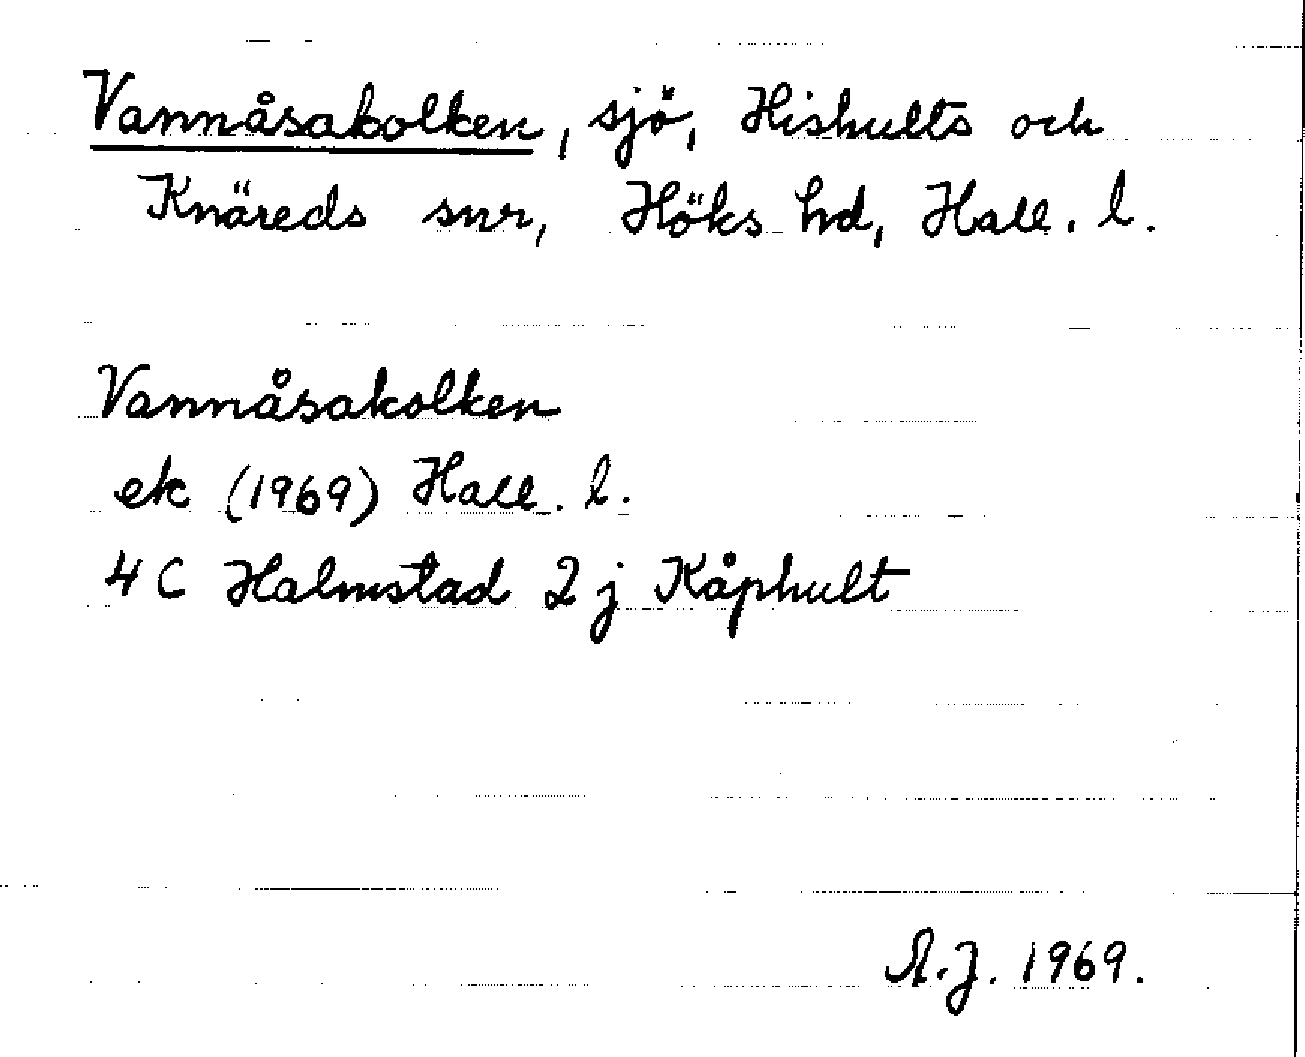 Vannåsakolken, sjö, Hishults och
Knäreds snr, Höks hd, Hall. l.
Vannåsakolken
ek (1969) Hall. l.
4 C Halmstad 2 j Kåphult
A.J. 1969.